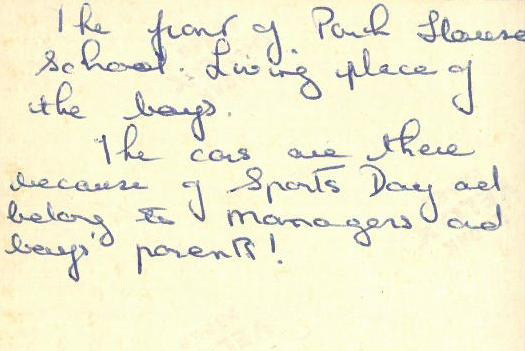 The front of Park House
School. Living place of
the boys.
The cars are there
because of Sports Day ad
belong to managers ad
boys' parents!